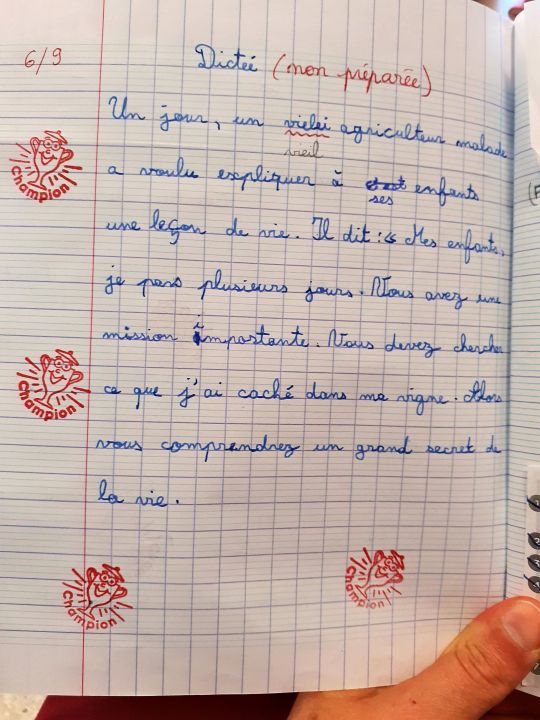 6/9
Dictée (non préparée)
Un jour, un vielei agriculteur malade
vieil
a voulu expliquer à enfants
ses
une leçon de vie. Il dit : « Mes enfants,
je pars plusieurs jours. Vous avez une
mission importante. Vous devez chercher
ce que j'ai caché dans ma vigne. Alors
vous comprendrez un grand secret de
la vie.
Champion
Champion
Champion
Champion